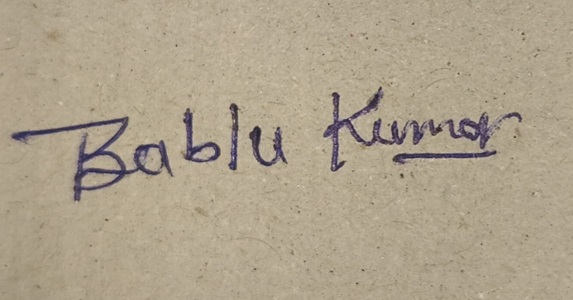 Bablu Kumar